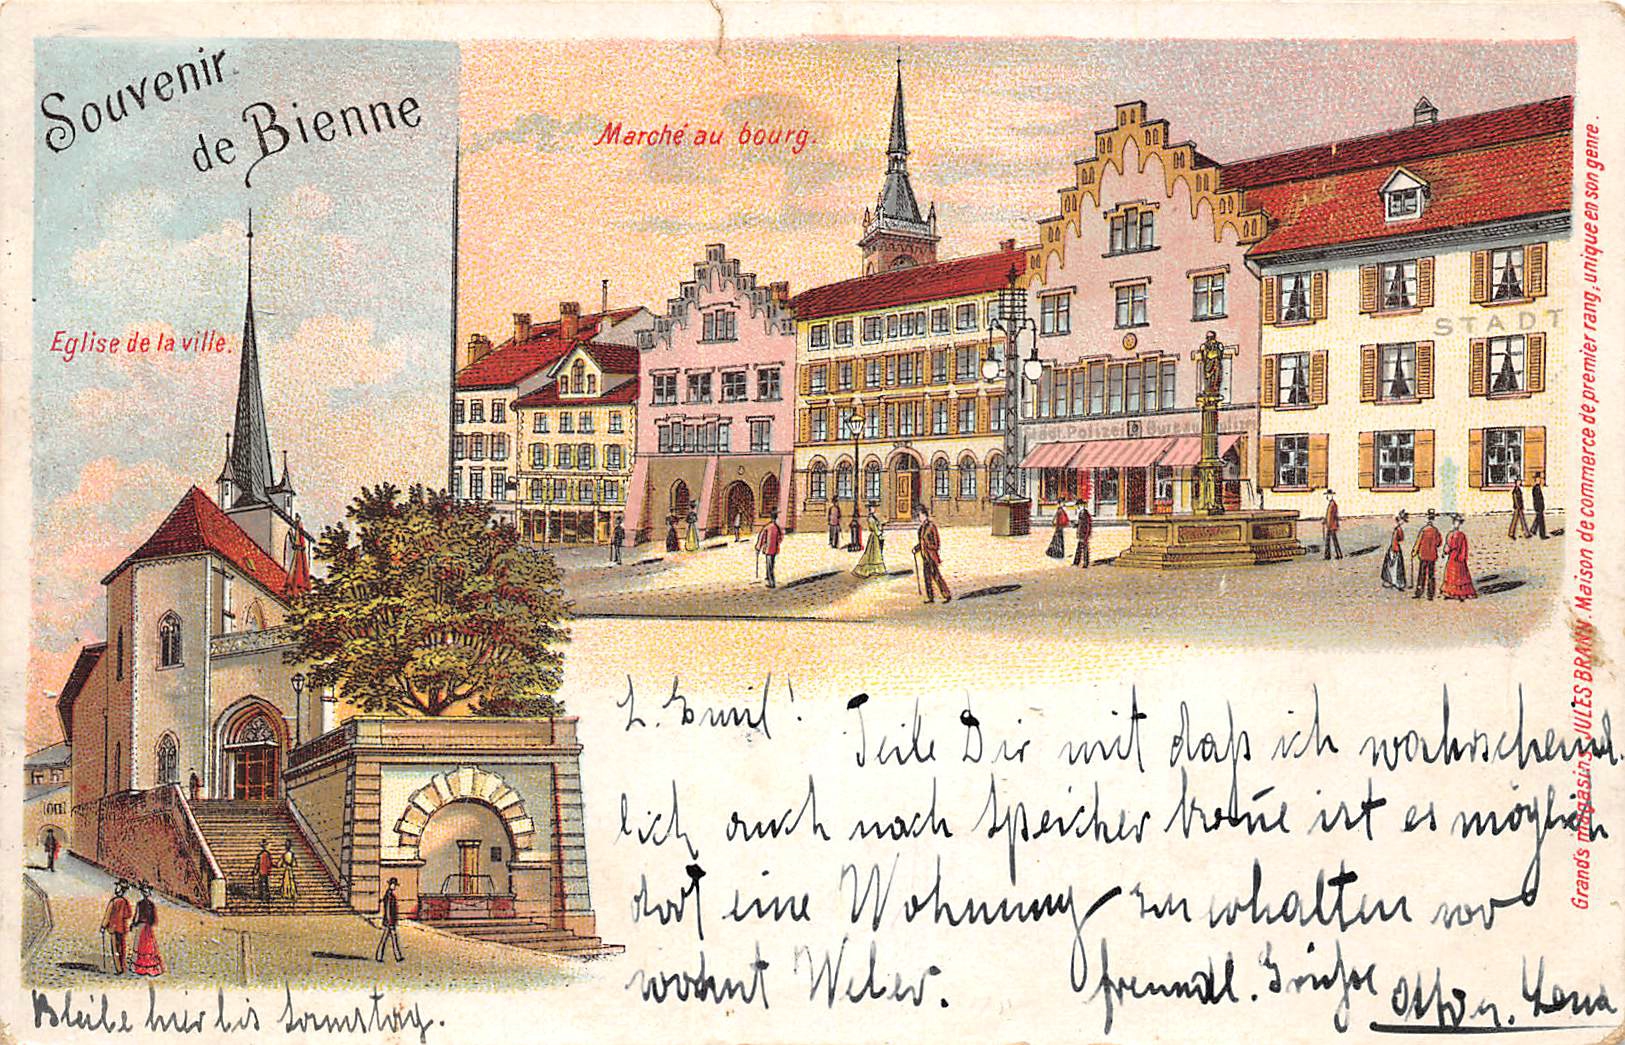 Souvenir
de Bienne
Marché au bourg.
Eglise de la ville.
STADT
Polizei Bureau
L. Emil!
Teile Dir mit daß ich wahrschein-
lich auch nach Speicher kom̄e ist es möglich
dort eine Wohnung zu erhalten wo
wohnt Weber.
freundl. Grüße
Lena
Bleibe hier bis Samstag.
Grands magasins JULES BRANN. Maison de commerce de premier rang, unique en son genre.